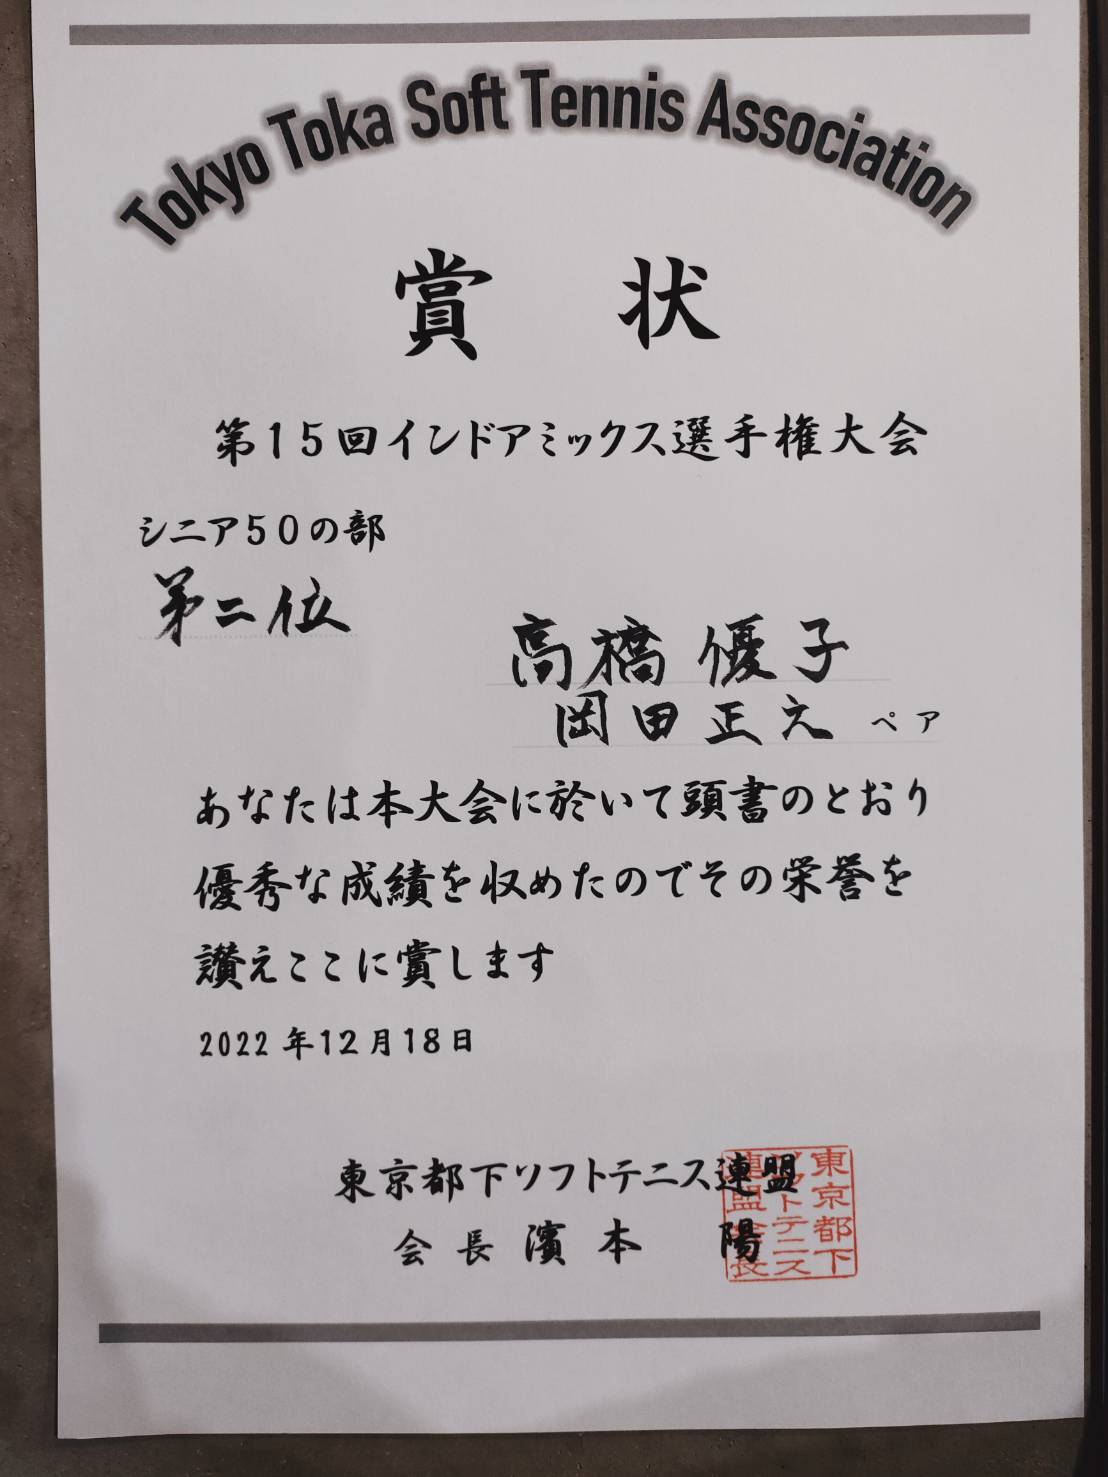 Tokyo Toka Soft Tennis Association
賞 状
第15回インドアミックス選手権大会
シニア50の部
第二位
高橋 優子
岡田正文 ペア
あなたは本大会に於いて頭書のとおり
優秀な成績を収めたのでその栄誉を
讃えここに賞します
2022年12月18日
東京都下ソフトテニス連盟
会長 濱本 陽
東京都下
ソフトテニス
連盟会長